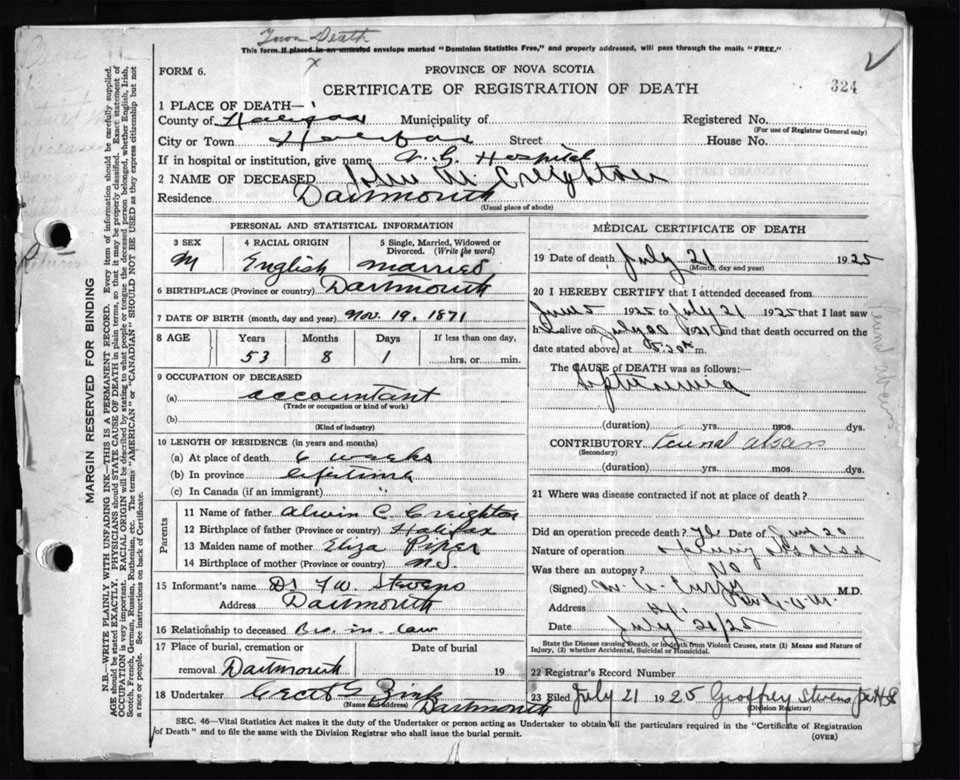 Town Death
This form if placed in an untested envelope marked "Dominion Statistics Free," and properly addressed, will pass through the mails "FREE."
x
FORM 6.
PROVINCE OF NOVA SCOTIA
324
CERTIFICATE OF REGISTRATION OF DEATH
1 PLACE OF DEATH—
County of Halifax Municipality of Registered No.
(For use of Registrar General only)
City or Town Halifax Street House No.
If in hospital or institution, give name V. G. Hospital
2 NAME OF DECEASED John M Creighton
Residence Dartmouth
(Usual place of abode)
PERSONAL AND STATISTICAL INFORMATION
3 SEX 4 RACIAL ORIGIN 5 Single, Married, Widowed or Divorced. (Write the word)
M English married
6 BIRTHPLACE (Province or country) Dartmouth
7 DATE OF BIRTH (month, day and year) Nov. 19. 1871
8 AGE Years Months Days If less than one day,
53 8 1 hrs. or min.
9 OCCUPATION OF DECEASED
(a) accountant
(Trade or occupation or kind of work)
(b)
(Kind of industry)
10 LENGTH OF RESIDENCE (in years and months)
(a) At place of death 6 weeks
(b) In province lifetime
(c) In Canada (if an immigrant) "
Parents
11 Name of father Alwin C. Creighton
12 Birthplace of father (Province or country) Halifax
13 Maiden name of mother Eliza Piper
14 Birthplace of mother (Province or country) N.S.
15 Informant's name Dr F W Stevens
Address Dartmouth
16 Relationship to deceased Bro. in. law
17 Place of burial, cremation or removal Dartmouth Date of burial 19
18 Undertaker Zink
(Name and address) Dartmouth
MEDICAL CERTIFICATE OF DEATH
19 Date of death July 21 1925
(Month, day and year)
20 I HEREBY CERTIFY that I attended deceased from
1925 to July 21 1925 that I last saw
h alive on July 20 and that death occurred on
date stated above, at m.
The CAUSE OF DEATH was as follows:
Septicaemia
(duration) yrs. mos. dys.
CONTRIBUTORY
(Secondary)
(duration) yrs. mos. dys.
21 Where was disease contracted if not at place of death?
Did an operation precede death? Date of
Nature of operation Opening abscess
Was there an autopsy? No
(Signed) M.D.
Address
Date July 21/25
State the Disease causing Death, or in death from Violent Causes, state (1) Means and Nature of Injury, (2) whether Accidental, Suicidal or Homicidal.
22 Registrar's Record Number
23 Filed July 21 1925 Geoffrey Stevens
(Division Registrar)
SEC. 46—Vital Statistics Act makes it the duty of the Undertaker or person acting as Undertaker to obtain all the particulars required in the "Certificate of Registration
of Death" and to file the same with the Division Registrar who shall issue the burial permit.
(OVER)
MARGIN RESERVED FOR BINDING
N.B.—WRITE PLAINLY WITH UNFADING INK—THIS IS A PERMANENT RECORD. Every item of information should be carefully supplied.
AGE should be stated EXACTLY. PHYSICIANS should STATE CAUSE OF DEATH in plain terms, so that it may be properly classified. Exact statement of
OCCUPATION is very important. RACIAL ORIGIN will be described by stating to what people or tongue the deceased person belonged, whether English, Irish,
Scotch, French, German, Russian, Ruthenian, etc. The terms "AMERICAN" or "CANADIAN" SHOULD NOT BE USED as they express citizenship but not
a race or people. See instructions on back of Certificate.